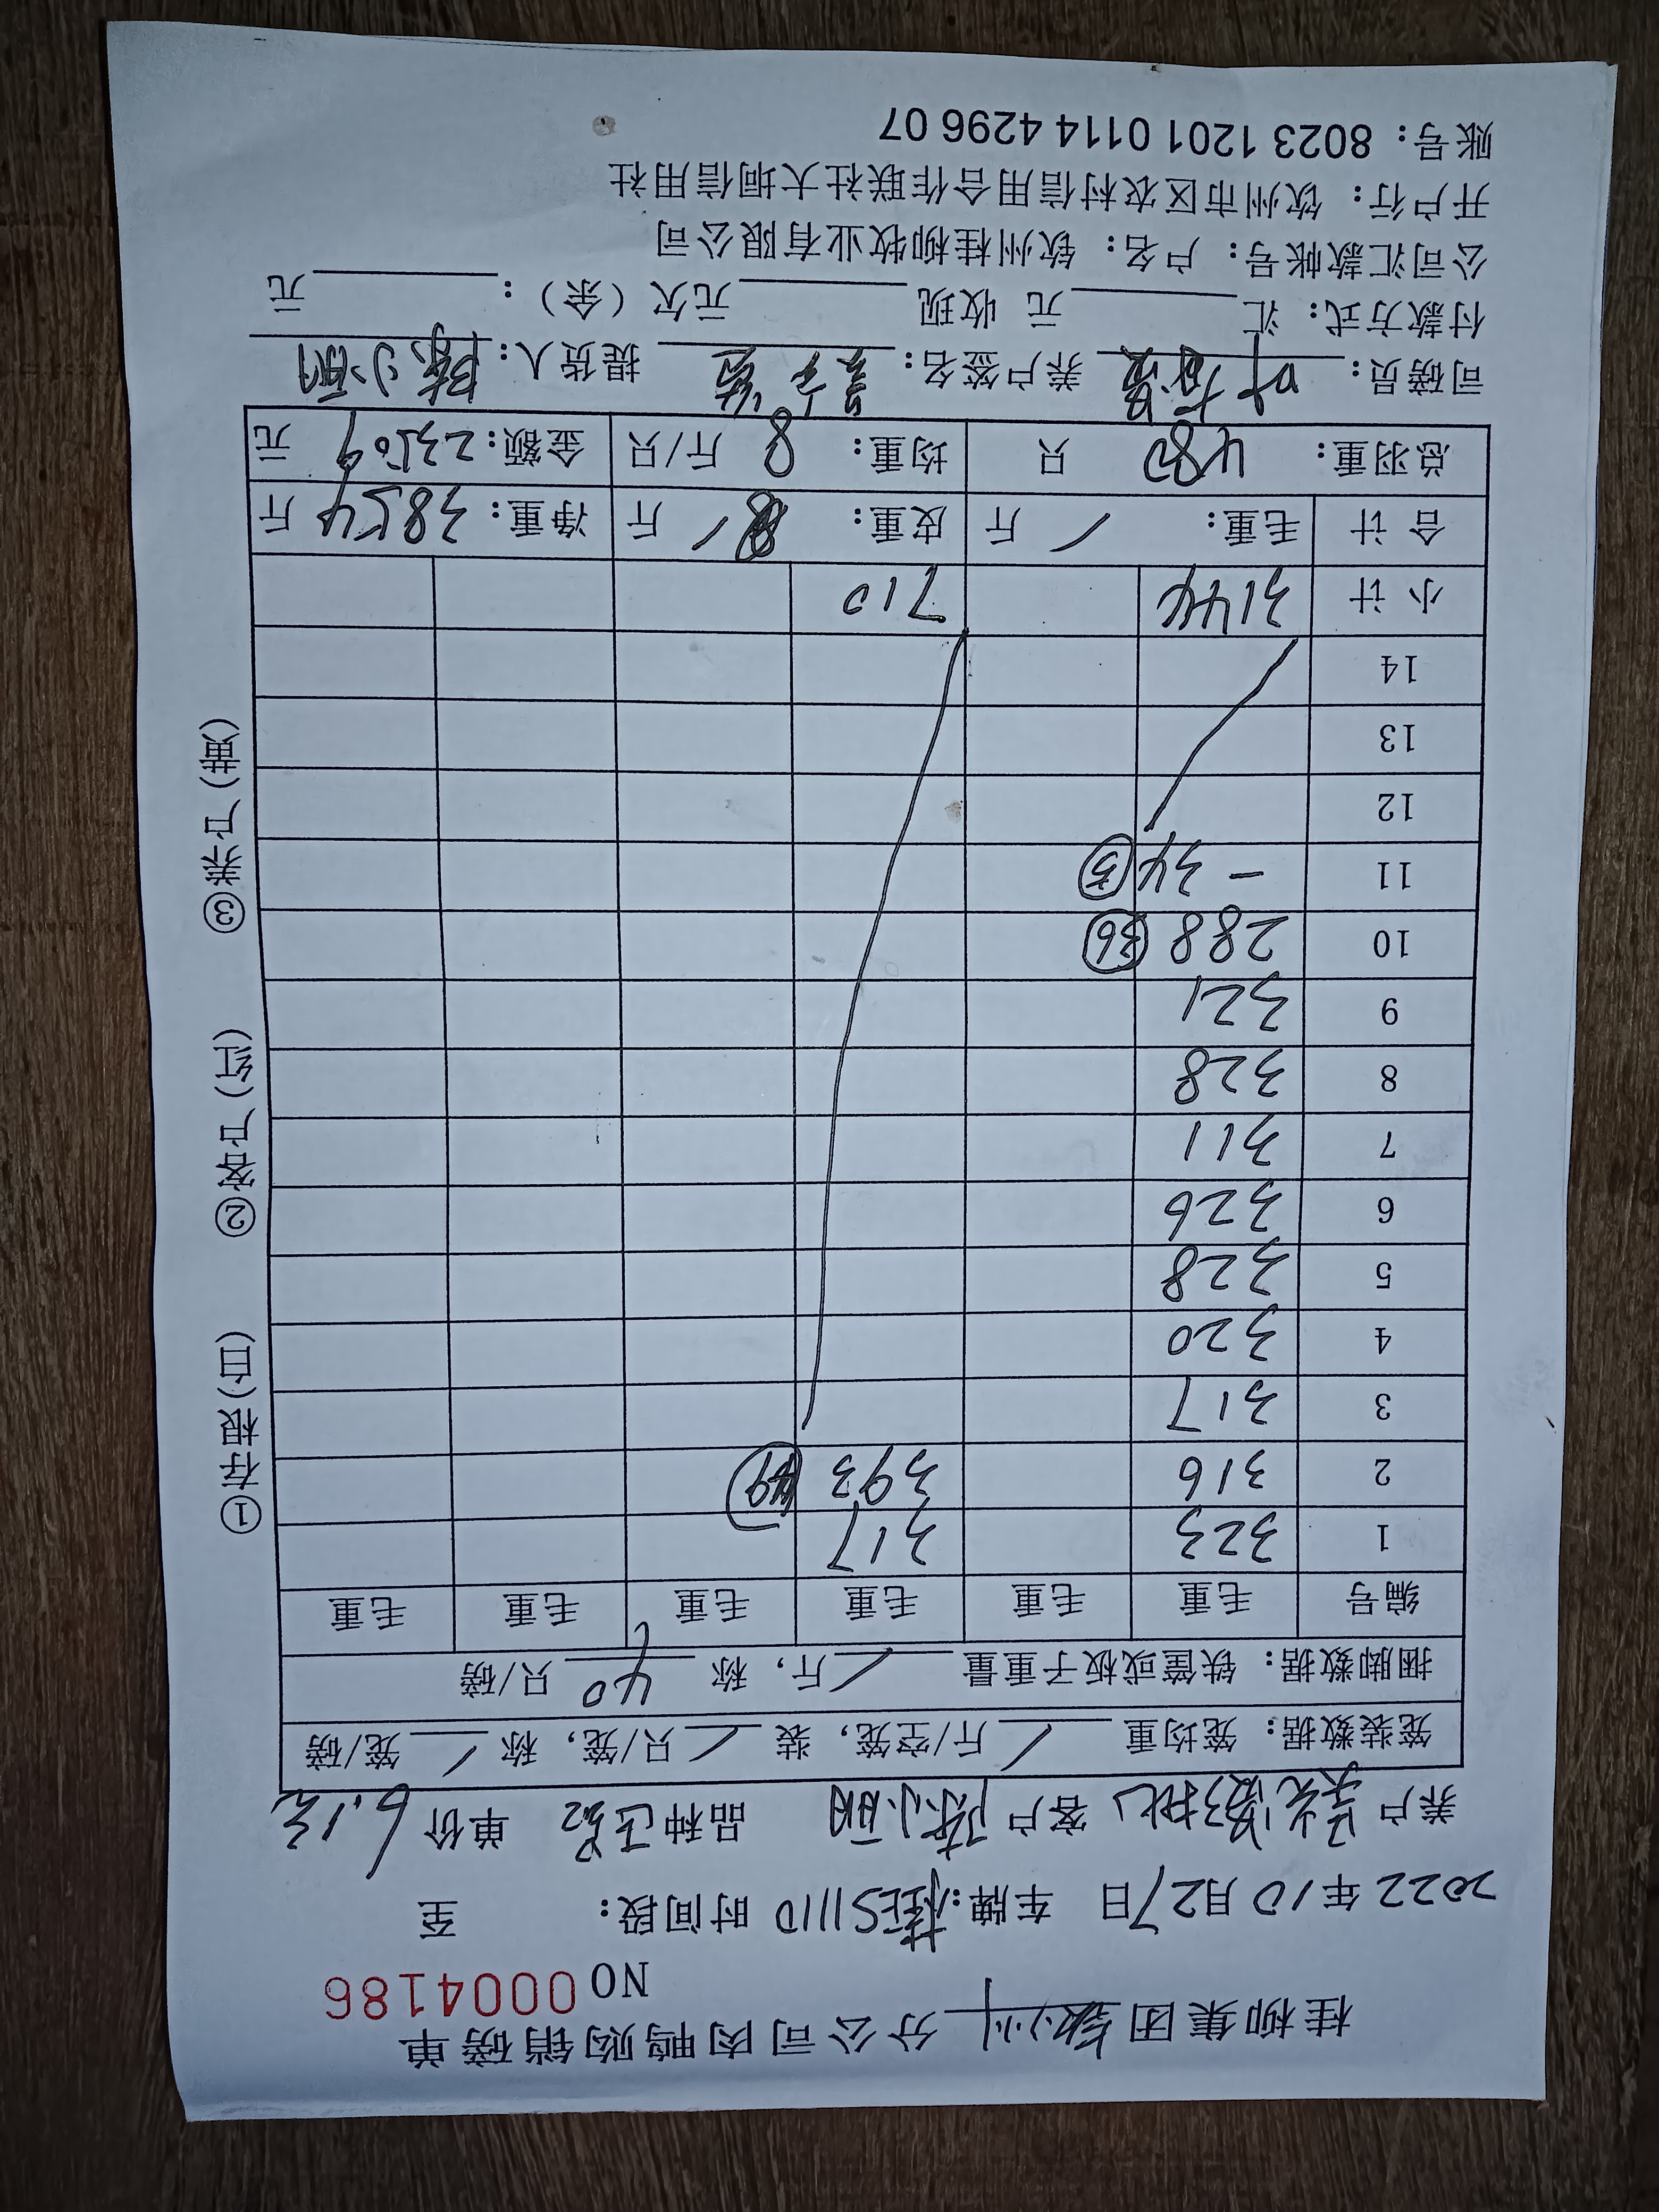 桂柳集团钦州分公司肉鸭购销磅单
NO 0004186
2022年10月27日 车牌:桂ES1110 时间段: 至
养户 客户 陈小丽 品种 单价 6.1元
笼装数据: 笼均重 / 斤/空笼, 装 / 只/笼, 称 / 笼/磅
捆脚数据: 铁筐或板子重量 / 斤, 称 40 只/磅
编号 毛重 毛重 毛重 毛重 毛重 毛重
1 323 317
2 316 393 49
3 317
4 320
5 328
6 326
7 311
8 328
9 321
10 288 36
11 - 34 5
12
13
14
小计 3144 710
合计 毛重: / 斤 皮重: / 斤 净重: 3854 斤
总羽重: 480 只 均重: 8 斤/只 金额: 23509 元
司磅员: 养户签名: 提货人: 陈小丽
付款方式: 汇 元 收现 元欠(余): 元
公司汇款帐号: 户名: 钦州桂柳牧业有限公司
开户行: 钦州市区农村信用合作联社大垌信用社
账号: 8023 1201 0114 4296 07
①存根(白) ②客户(红) ③养户(黄)